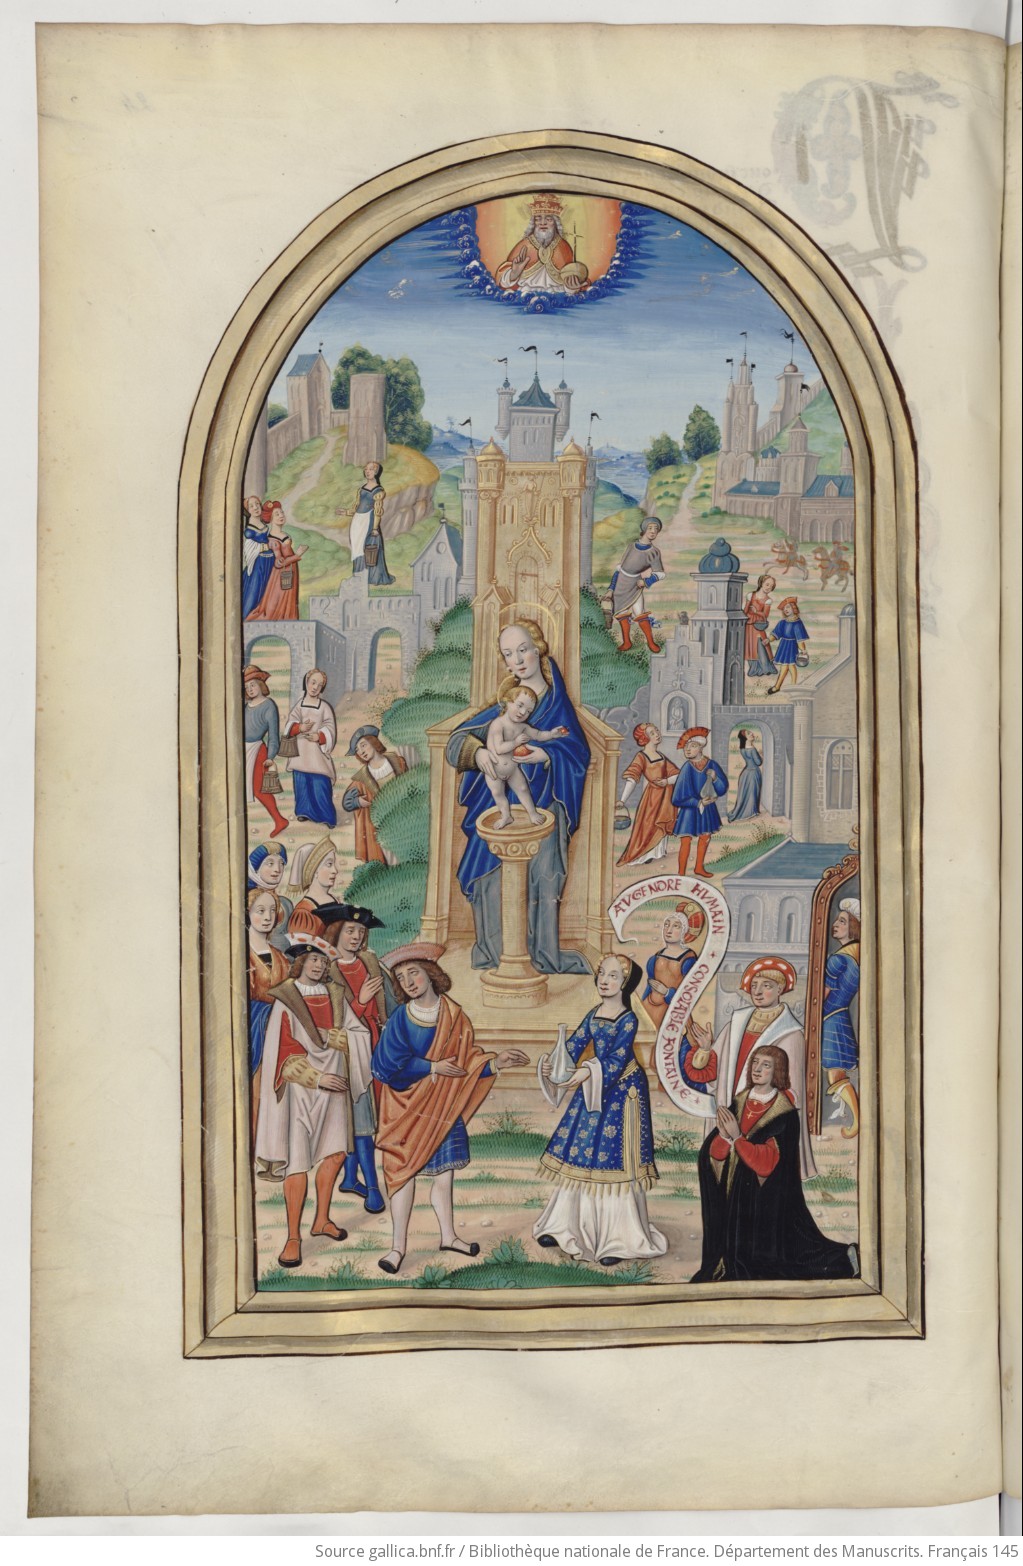 AV GENDRE HVMAIN CONSOLABLE FONTAINE
Source gallica.bnf.fr / Bibliothèque nationale de France. Département des Manuscrits. Français 145